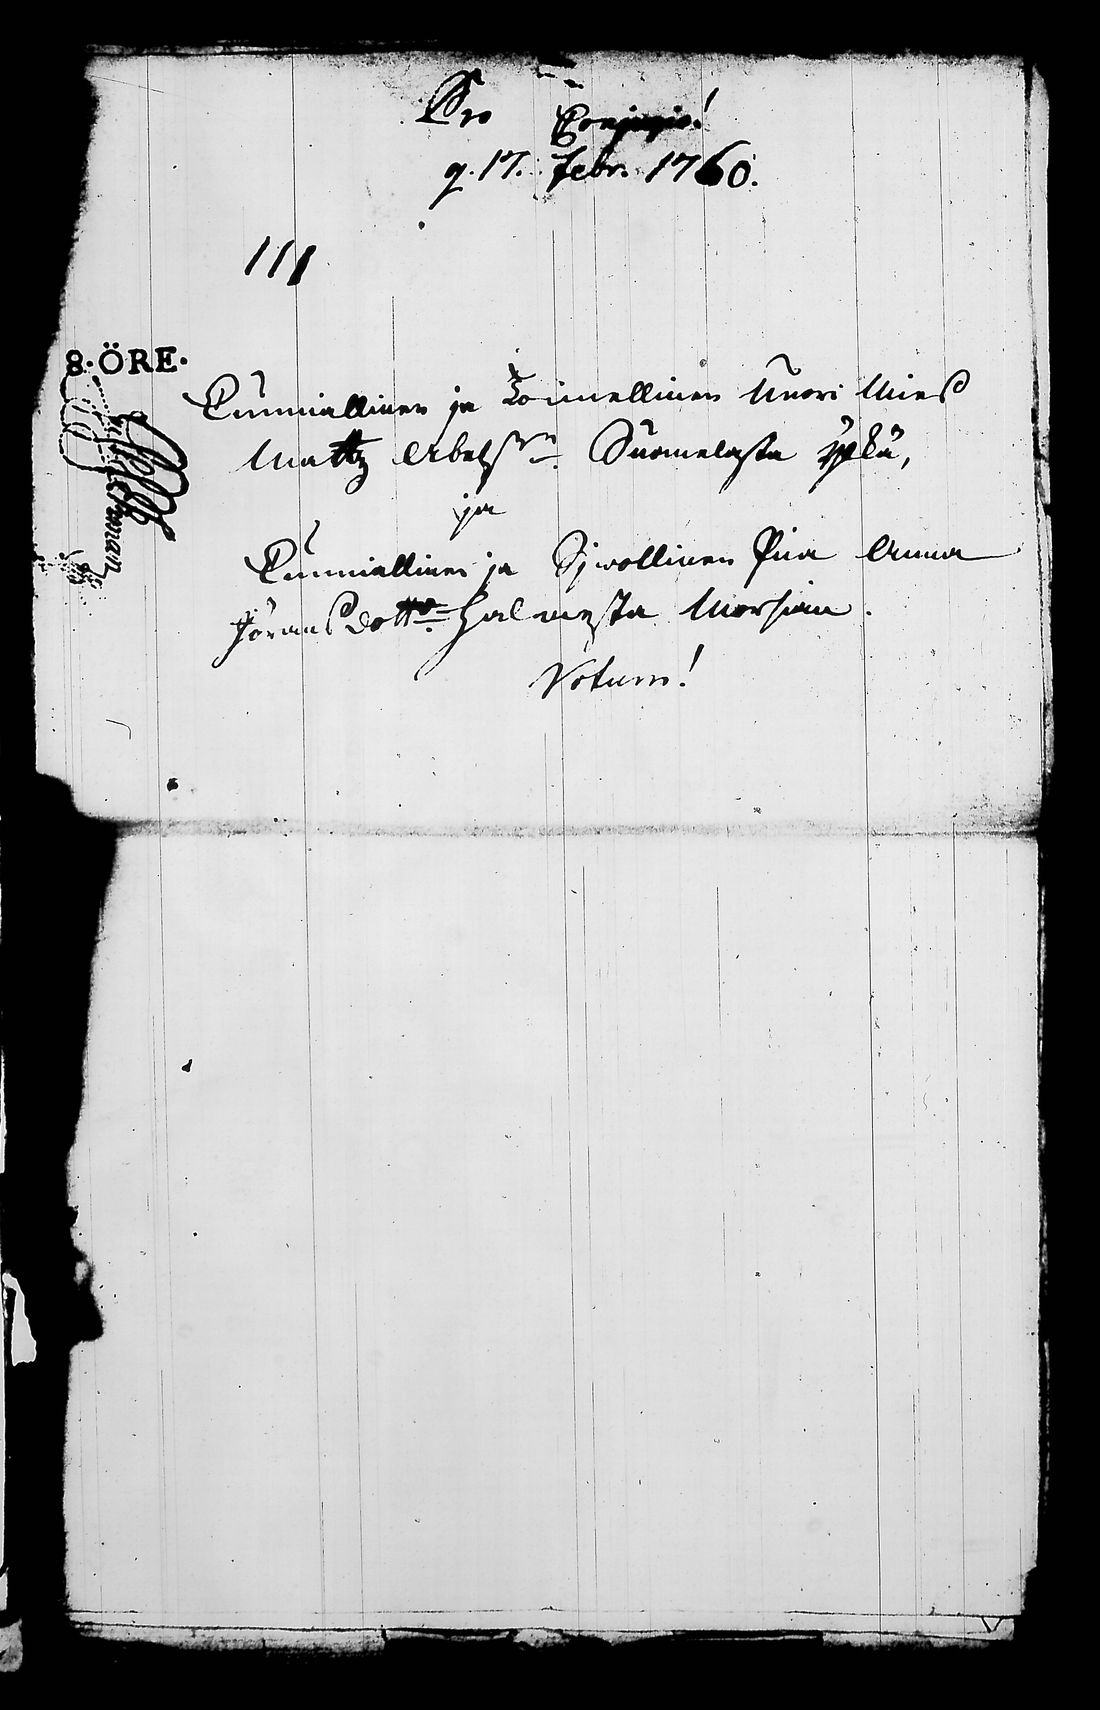 Pro Conjugio!
q. 17. Febr. 1760.
111
8. ÖRE.
Cunniallinen ja Toimellinen Nuori Mies
Mattz Abelsson Suomelasta Ylkä,
ja
Cunniallinen ja Sijwollinen Pija Anna
Jörans dotter Halmesta Morsian.
Votum!